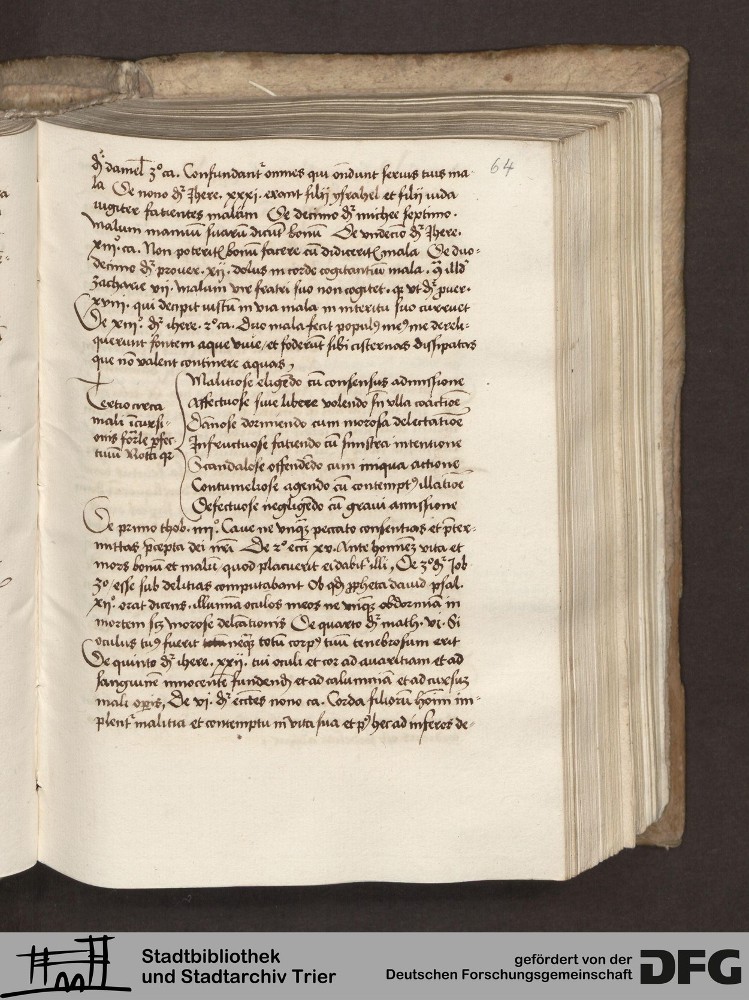 64
dr daniel 3o ca. Confundantr omnes qui ondunt seruis tuis ma
la De nono dr Jhere. xxxi. erant filij ysrahel et filij iuda
iugiter facientes malum De decimo dr michee septimo.
Malum manuum suarū dicūt bonū De vndecīo dr Jhere.
xiijo. ca. Non poteritꝭ bonū facere cū didiceritꝭ mala De duo-
decimo dr prouer. xij. dolus in corde cogitantiū mala.
zacharie vij. malum vir fratri suo non cogitet. vt dr puer.
xviij. qui decipit iustū in via mala in interitu suo curruet
De xiijo. dr ihere. 2o ca. Duo mala fecit populꝰ meꝰ me dereli-
querunt fontem aque viuie, et foderūt sibi cisternas dissipatas
que nō valent continere aquas,
Tertio circa
mali īcursi-
onis
Malitiose eligēdo cū consensus admissione
Affectuose siue libere volendo sn vlla coactiōe
Dānose dormiendo cum morosa delectatiōe
Infructuose faciendo cū sinistra intentione
Scandalose offendēdo cum iniqua actione
Contumeliose agendo cū contemptꝰ illatiōe
Defectuose negligēdo cū graui amissione
De primo thob. iiijo. Caue ne vnqꝫ peccato consentias et pter-
mittas pcepta dei nrī De 2o ecci xv. Ante hominē vita et
mors bonū et malū, quod placuerit ei dabitr illi, De 3o dr Job
3o, esse sub delitias computabant Ob qd ppheta dauid psal.
xijo. orat dicens. illumina oculos meos ne vnqꝫ obdormiā in
mortem scꝫ morose delcationis De quarto dr math. vi. Si
oculus tuꝰ fuerit neqꝫ totū corpꝰ tuū tenebrosum erit
De quinto dr ihere. xxij. tui oculi et cor ad auaritiam et ad
sanguinem innocentē fundendū et ad calumniā et ad cursuꝫ
mali opis, De vi. dr eccles nono ca. Corda filiorū hoīm im-
plentr malitia et contemptu in vita sua et pꝰ hec ad inferos de-
Stadtbibliothek
und Stadtarchiv Trier
gefördert von der
Deutschen Forschungsgemeinschaft
DFG